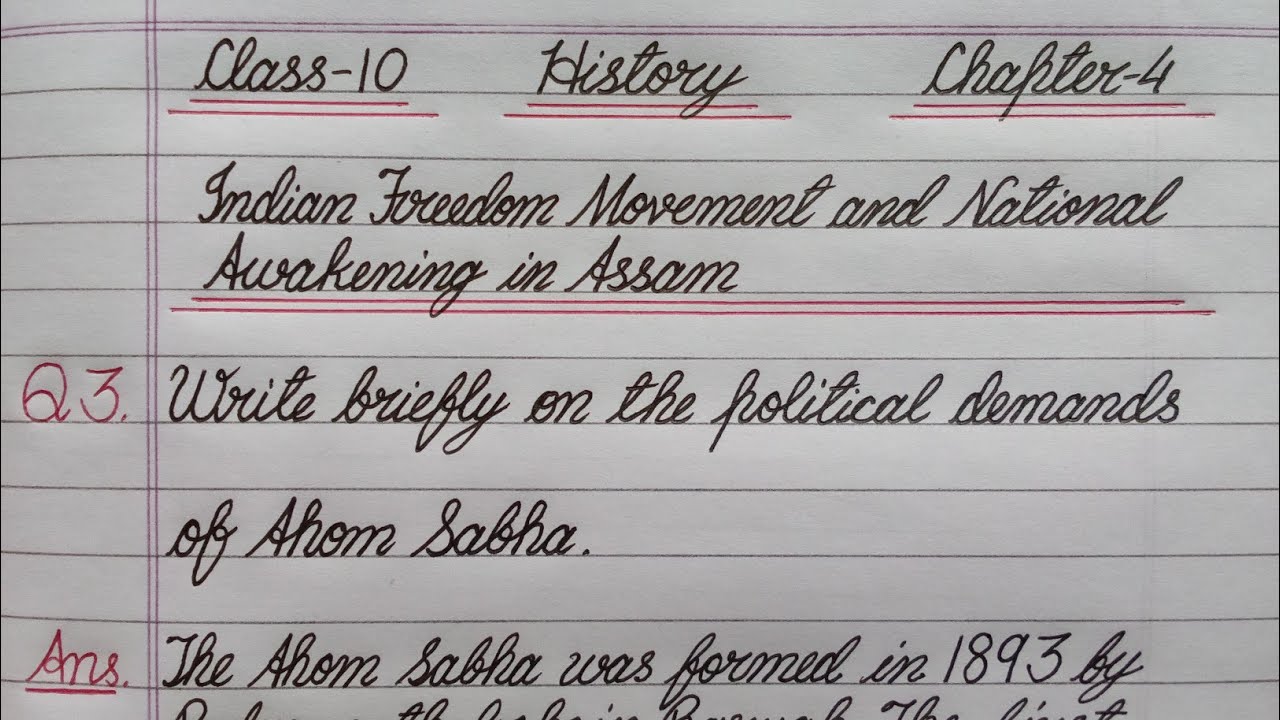 Class-10 History Chapter-4
Indian Freedom Movement and National
Awakening in Assam
Q3. Write briefly on the political demands
of Ahom Sabha.
Ans. The Ahom Sabha was formed in 1893 by